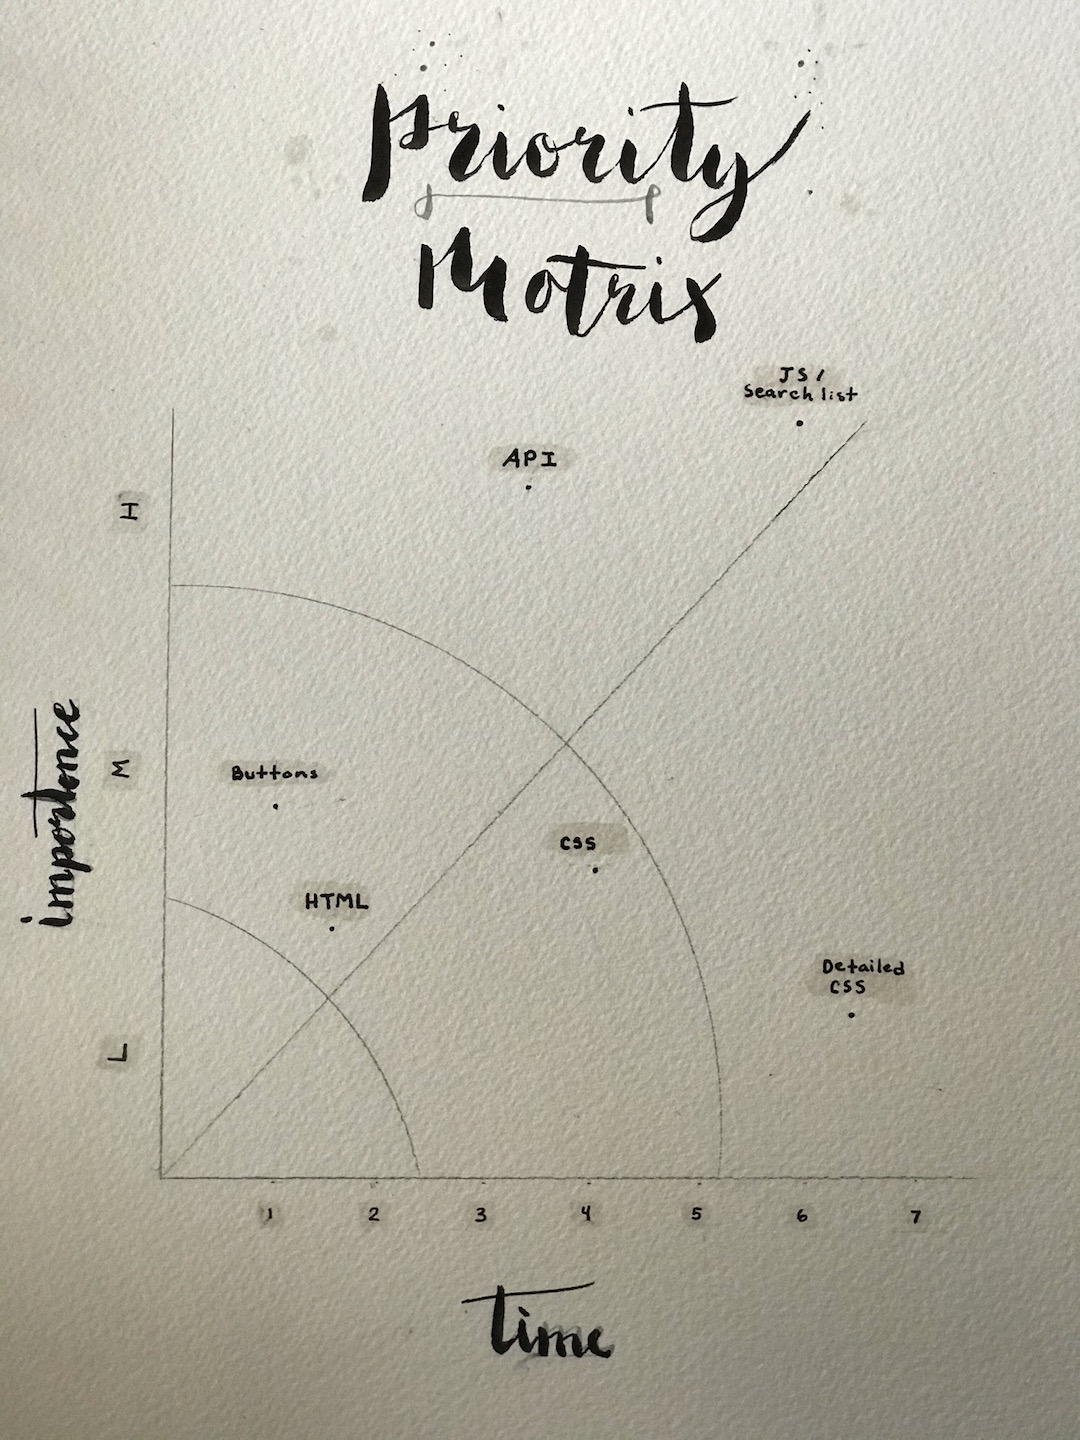 Priority
Matrix
JS/
Search list
API
H
importance
M
Buttons
CSS
HTML
Detailed
CSS
L
1 2 3 4 5 6 7
time